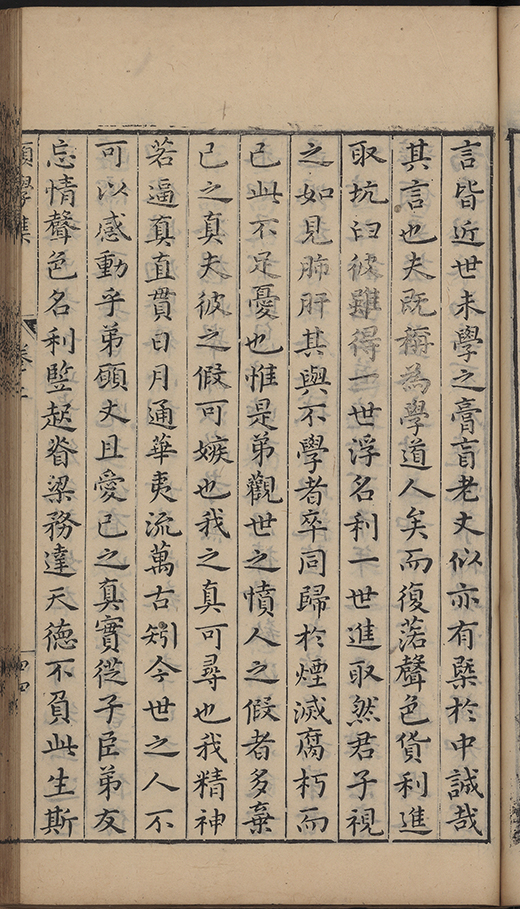 言皆近世末學之膏肓老丈似亦有槩於中誠哉
其言也夫既稱為學道人矣而復落聲色貨利進
取坑臼彼雖得一世浮名利一世進取然君子視
之如見肺肝其與不學者卒同歸於煙滅腐朽而
已此不足憂也惟是弟觀世之憤人之假者多棄
己之真夫彼之假可嫉也我之真可尋也我精神
若逼真直貫日月通華夷流萬古矧今世之人不
可以感動乎弟願丈且愛己之真實從子臣弟友
忘情聲色名利豎起脊梁務達天德不負此生斯
學集
卷之二
四四